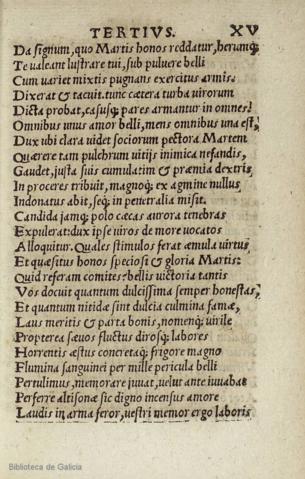 TERTIVS. XV
Da signum, quo Martis honos reddatur, herumq;
Te valeant lustrare tui, sub pulvere belli
Cum variet mixtis pugnans exercitus armis.
Dixerat & tacuit. tunc cætera turba virorum
Dicta probat, casusq; pares armantur in omnes.
Omnibus unus amor belli, mens omnibus una est,
Dux ubi clara videt sociorum pectora Martem
Quærere tam pulchrum vitijs inimica nefandis,
Gaudet, justa suis cumulatim & præmia dextris
In proceres tribuit, magnoq; ex agmine nullus
Indonatus abit, seq; in penetralia misit.
Candida jamq; polo cæcas aurora tenebras
Expulerat: dux ipse viros de more vocatos
Alloquitur. Quales stimulos ferat æmula virtus
Et quæsitus honos speciosi & gloria Martis:
Quid referam comites? bellis victoria tantis
Vos docuit quantum dulcissima semper honestas,
Et quantum nitidæ sint dulcia culmina famæ,
Laus meritis & parta bonis, nomenq; virile
Propterea sævos fluctus dirosq; labores
Horrentis æstus concretaq; frigore magno
Flumina sanguinei per mille pericula belli
Pertulimus, memorare juvat, velut ante juvabat
Perferre altisonæ sic digno incensus amore
Laudis in arma feror, vestri memor ergo laboris
Biblioteca de Galicia